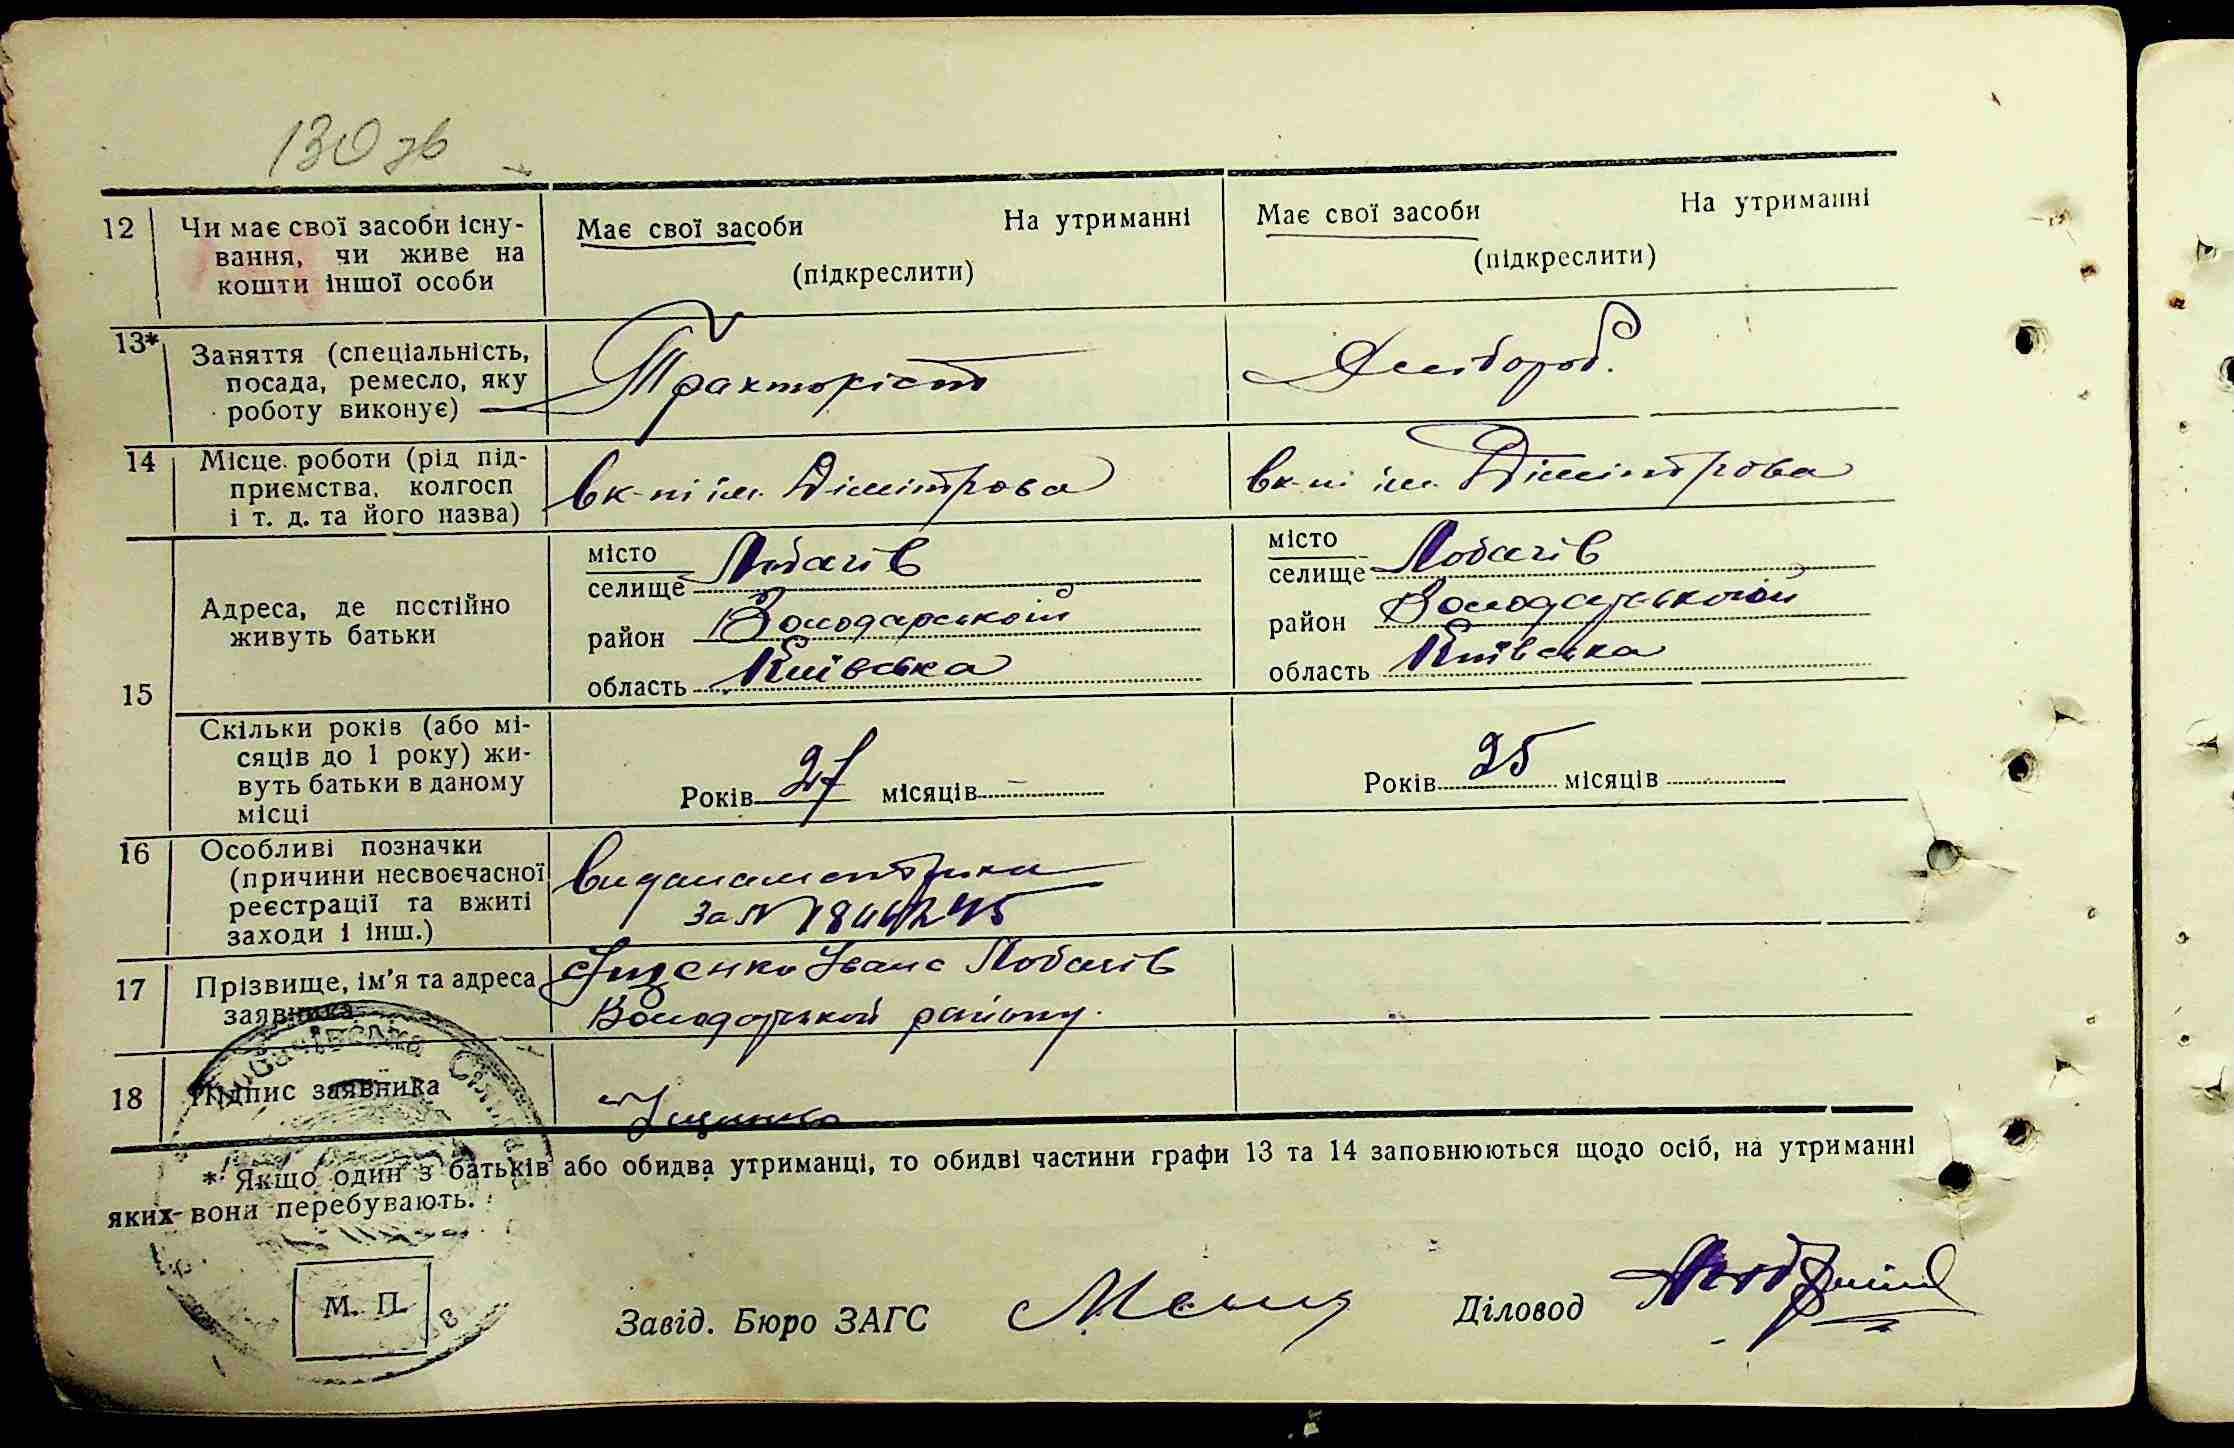 130 зв
12 Чи має свої засоби існу- Має свої засоби На утриманні Має свої засоби На утриманні
вання, чи живе на (підкреслити) (підкреслити)
кошти іншої особи
13* Заняття (спеціальність, Тракторіст
посада, ремесло, яку
роботу виконує)
14 Місце роботи (рід під- вк-ні ім. Дімітрова вк-ні ім. Дімітрова
приємства, колгосп
і т. д. та його назва)
15 Адреса, де постійно
живуть батьки
місто
селище Лобачів
район Володарський
область Київська
місто
селище Лобачів
район
область Київська
Скільки років (або мі-
сяців до 1 року) жи-
вуть батьки в даному
місці
Років 27 місяців –
Років 25 місяців
16 Особливі позначки
(причини несвоєчасної
реєстрації та вжиті
заходи і інш.)
видана метрика
за №
17 Прізвище, ім'я та адреса
заявника
Іщенко Івана Лобачів
району.
18 Підпис заявника
Іщенко
* Якщо один з батьків або обидва утриманці, то обидві частини графи 13 та 14 заповнюються щодо осіб, на утриманні
яких вони перебувають.
М. П.
Завід. Бюро ЗАГС
Діловод